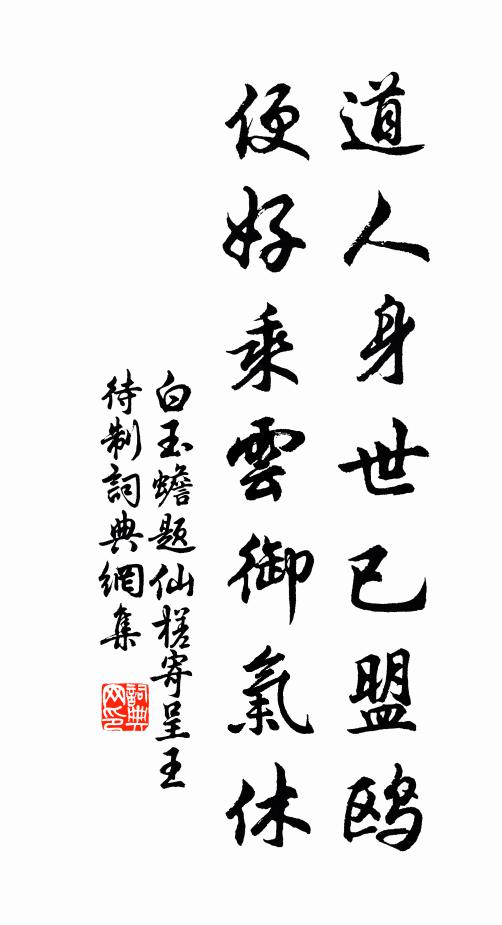 道人身世已盟鷗
便好乘雲御氣休
白玉蟾题仙槎寄呈王
待制詞典網集
詞典网印